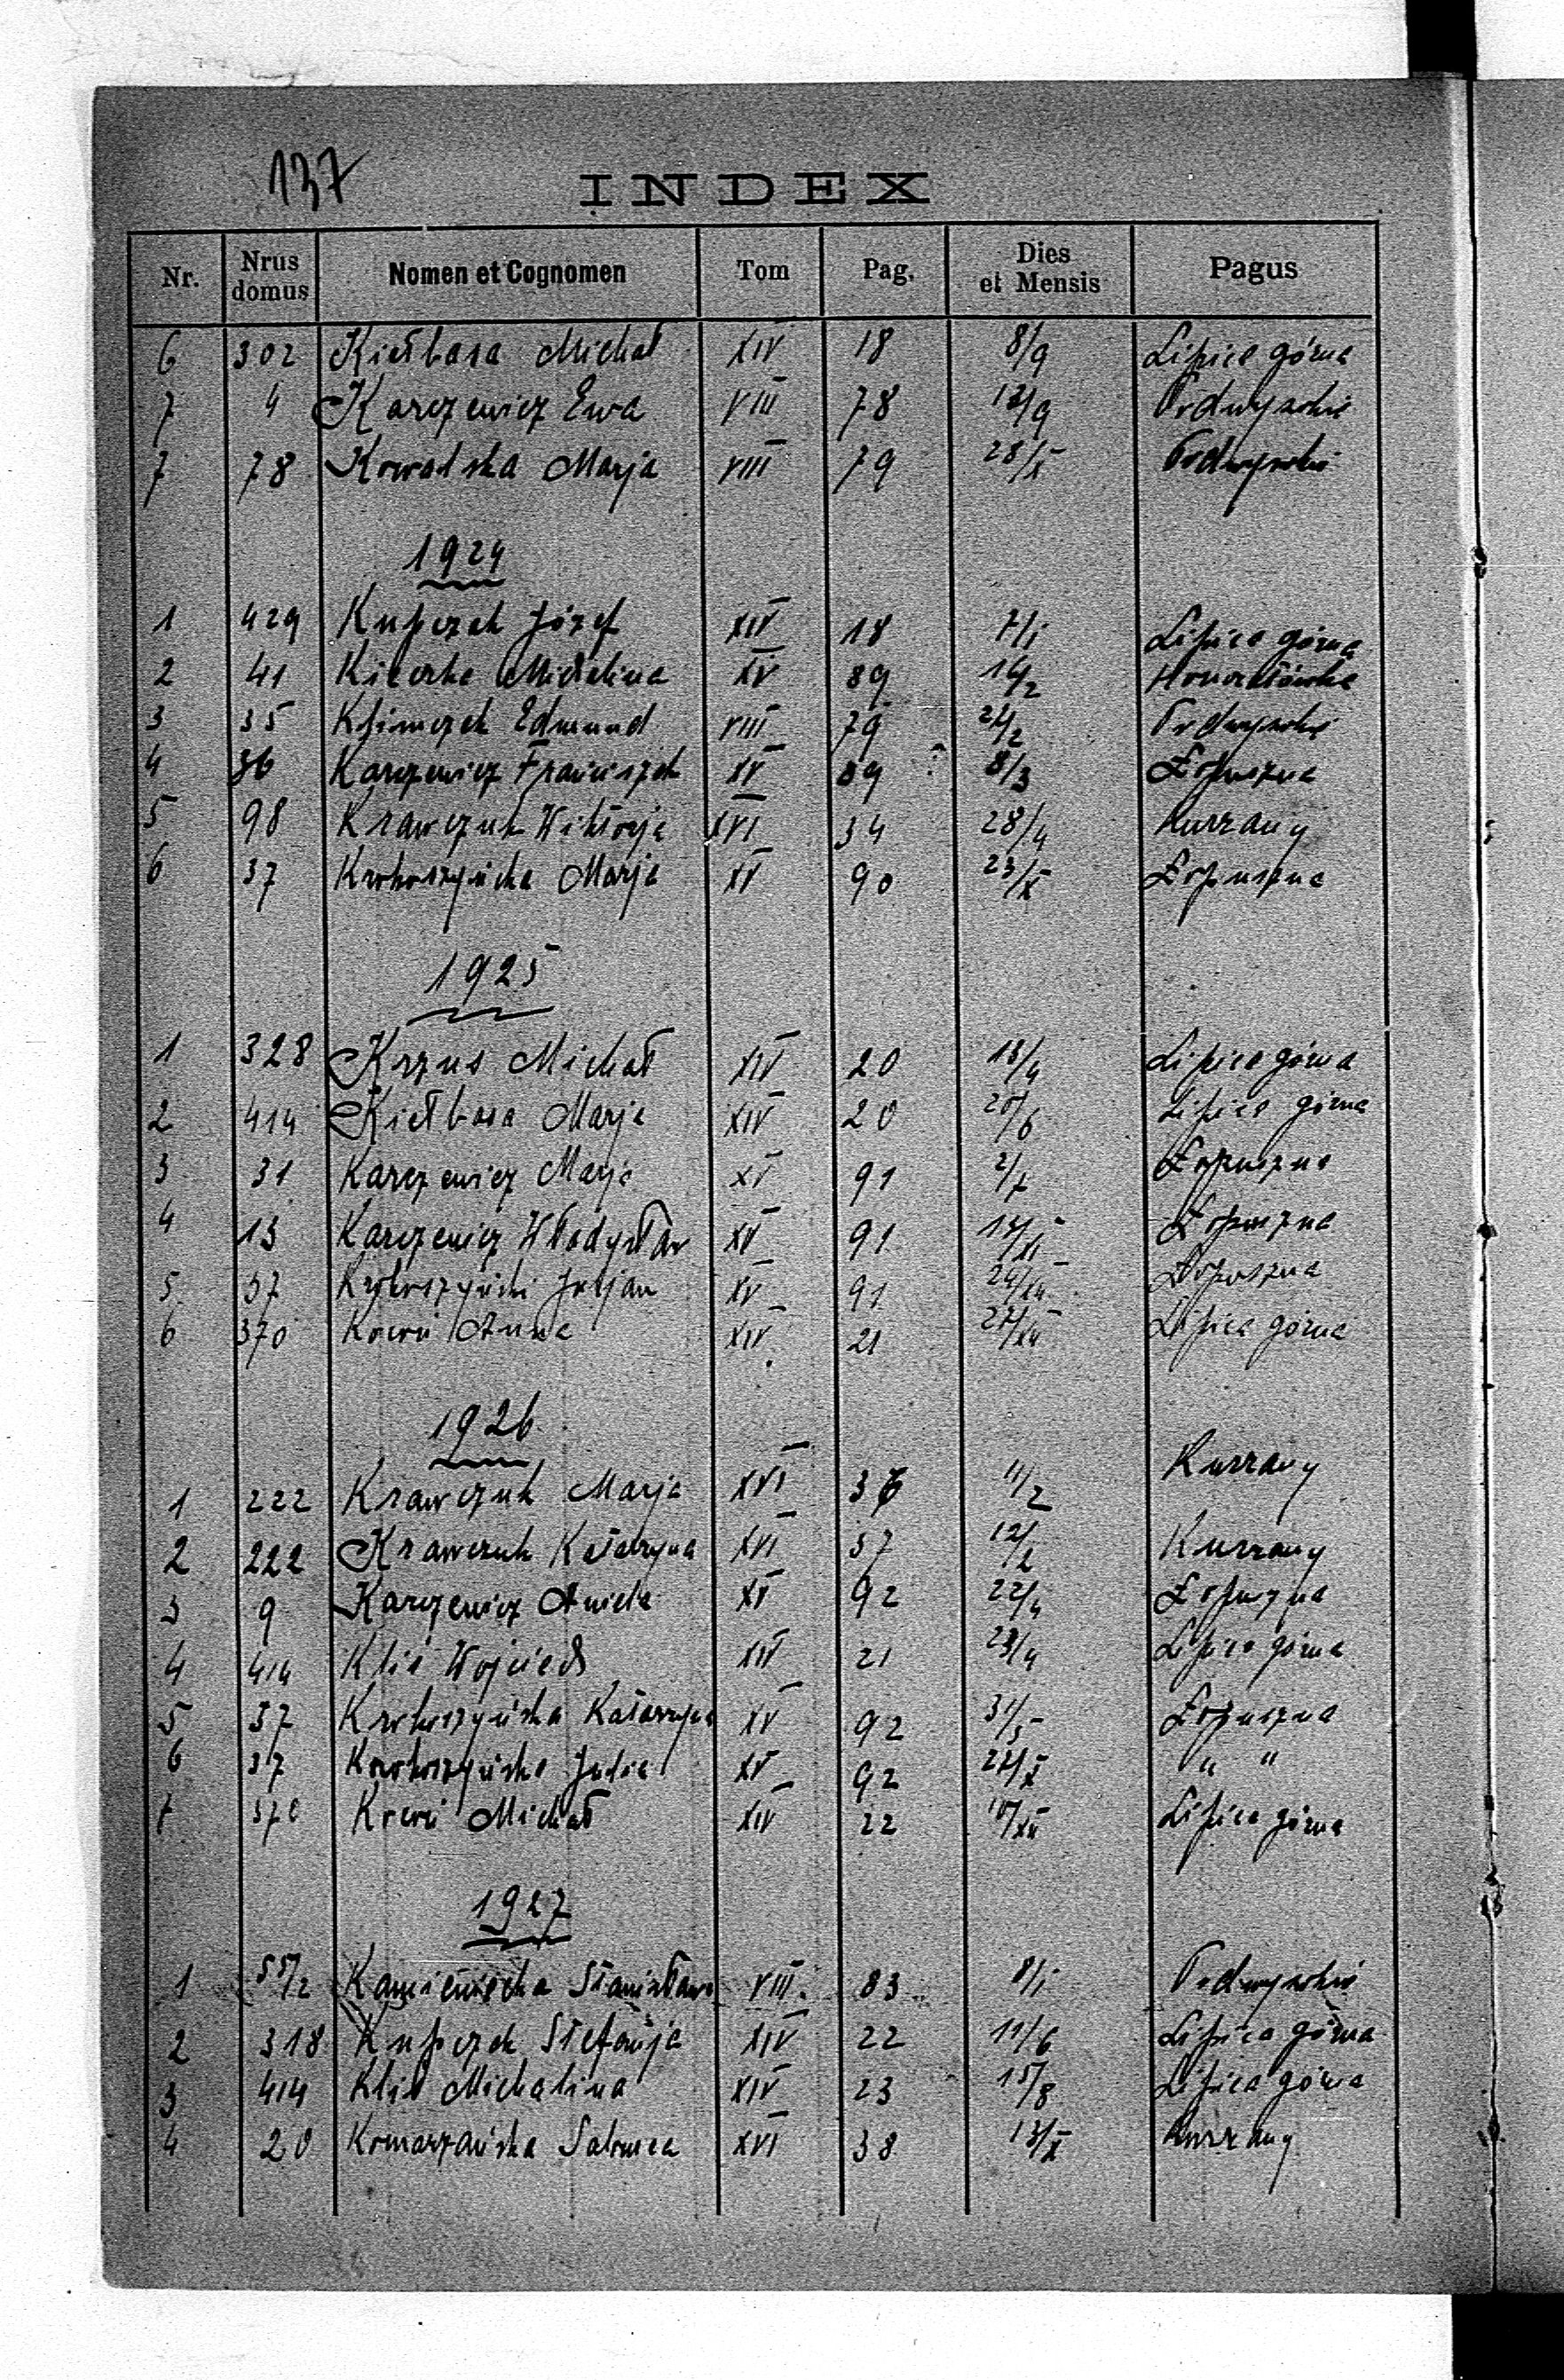 137
INDEX
Nr. Nrus domus Nomen et Cognomen Tom Pag. Dies et Mensis Pagus
6 302 Kiełbasa Michał XIV 18 8/9 Lipica górna
7 4 Karczewicz Ewa VIII 78 12/9 Podwysokie
7 78 Kowalska Marja VIII 79 28/X Podwysokie
1924
1 429 Kupczak Józef XIV 18 7/1 Lipica górna
2 41 XV 89 14/2 Honoratówka
3 35 Klimczak Edmund VIII 79 21/2 Podwysokie
4 36 Karczewicz Franciszek XV 89 8/3 Łopuszna
5 98 Krawczuk Wiktorja XVI 34 28/4 Kurzany
6 37 Krokoszyńska Marja XV 90 23/X Łopuszna
1925
1 328 Krzus Michał XIV 20 13/4 Lipica górna
2 414 Kiełbasa Marja XIV 20 20/6 Lipica górna
3 31 Karczewicz Marja XV 91 Łopuszna
4 13 Karczewicz Władysław XV 91 Łopuszna
5 37 Krokoszyński Juljan XV 91 Łopuszna
6 370 Anna XIV 21 Lipica górna
1926
1 222 Krawczuk Marja XVI 36 11/2 Kurzany
2 222 Krawczuk Katarzyna XVI 37 12/2 Kurzany
3 9 Karczewicz Aniela XV 92 22/4 Łopuszna
4 414 Kliś Wojciech XIV 21 23/4 Lipica górna
5 37 Krokoszyńska Katarzyna XV 92 31/5 Łopuszna
6 37 Krokoszyńska Julia XV 92 " "
7 370 Michał XIV 22 10/XII Lipica górna
1927
1 55/2 Kamieniecka Stanisława VIII 83 8/1 Podwysokie
2 318 Kupczak Stefanja XIV 22 11/6 Lipica górna
3 414 Kliś Michalina XIV 23 15/8 Lipica górna
4 20 Komarzańska Salomea XVI 38 13/X Kurzany